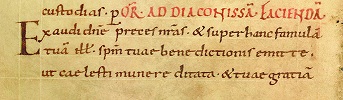 custodias. p OR̄. AD DIACONISSĀ FACIENDĀ
Exaudi dnē preces nr̄as. & super hanc famulā
tuā ill̄. spm̄ tuae benedictionis emitte.
ut caelesti munere ditata. & tuae gratiā